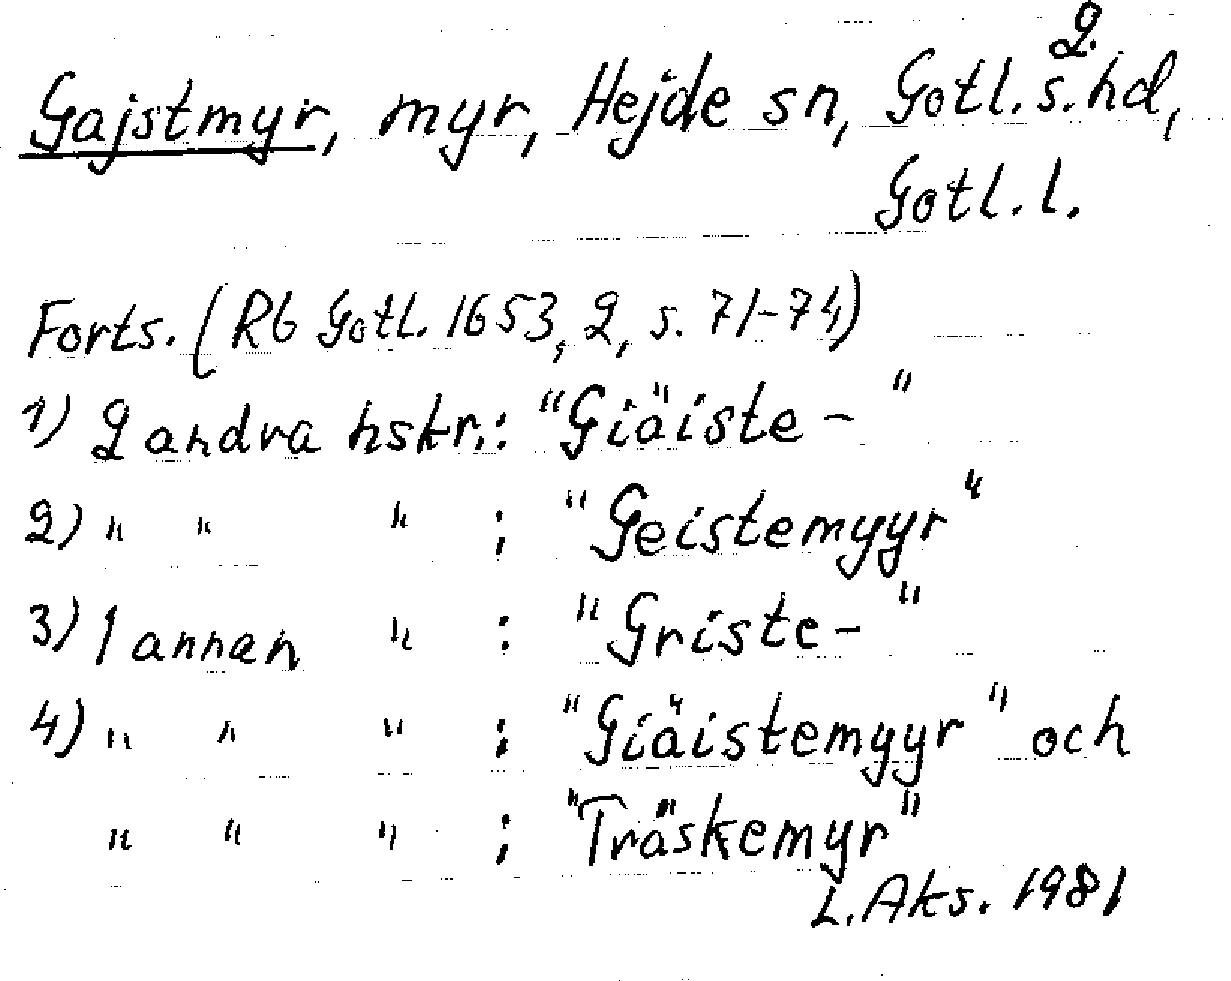 2.
Gajstmyr, myr, Hejde sn, Gotl. s. hd,
Gotl. l.
Forts. (Rb Gotl. 1653, 2, s. 71-74)
1) 2 andra hskr.: "Giäiste-"
2) " " " : "Geistemyyr"
3) 1 annan " : "Griste-"
4) " " " : "Giäistemyyr" och
" " " : "Träskemyr"
L. Aks. 1981